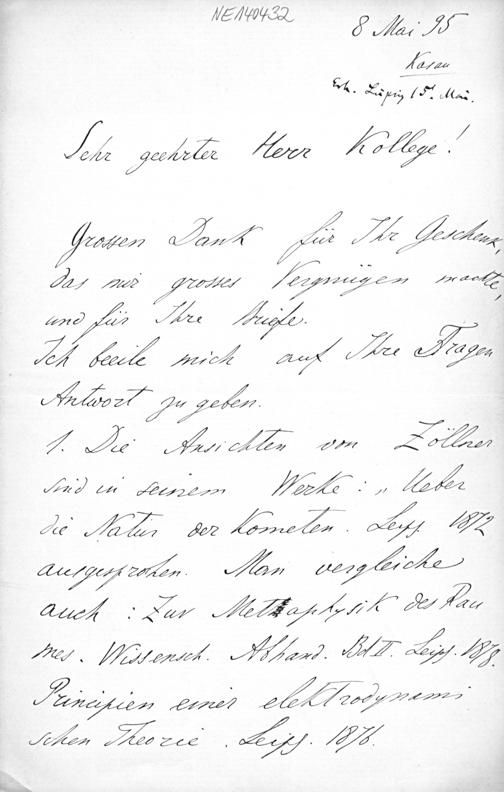 NE140432
8 Mai 95
Kasan
Erh. Leipzig 15. Mai.
Sehr geehrter Herr Kollege!
Grossen Dank für Ihr Geschenk,
das mir grosses Vergnügen machte,
und für Ihre Briefe.
Ich beeile mich auf Ihre Fragen
Antwort zu geben.
1. Die Ansichten von Zöllner
sind in seinem Werke: „Ueber
die Natur der Kometen. Leipz. 1872
ausgesprohen. Man vergleiche
auch: Zur Metaphysik des Rau
mes. Wissensch. Abhand. Bd II. Leipz. 1878.
Principien einer elektrodynami
schen Theorie. Leipz. 1876.